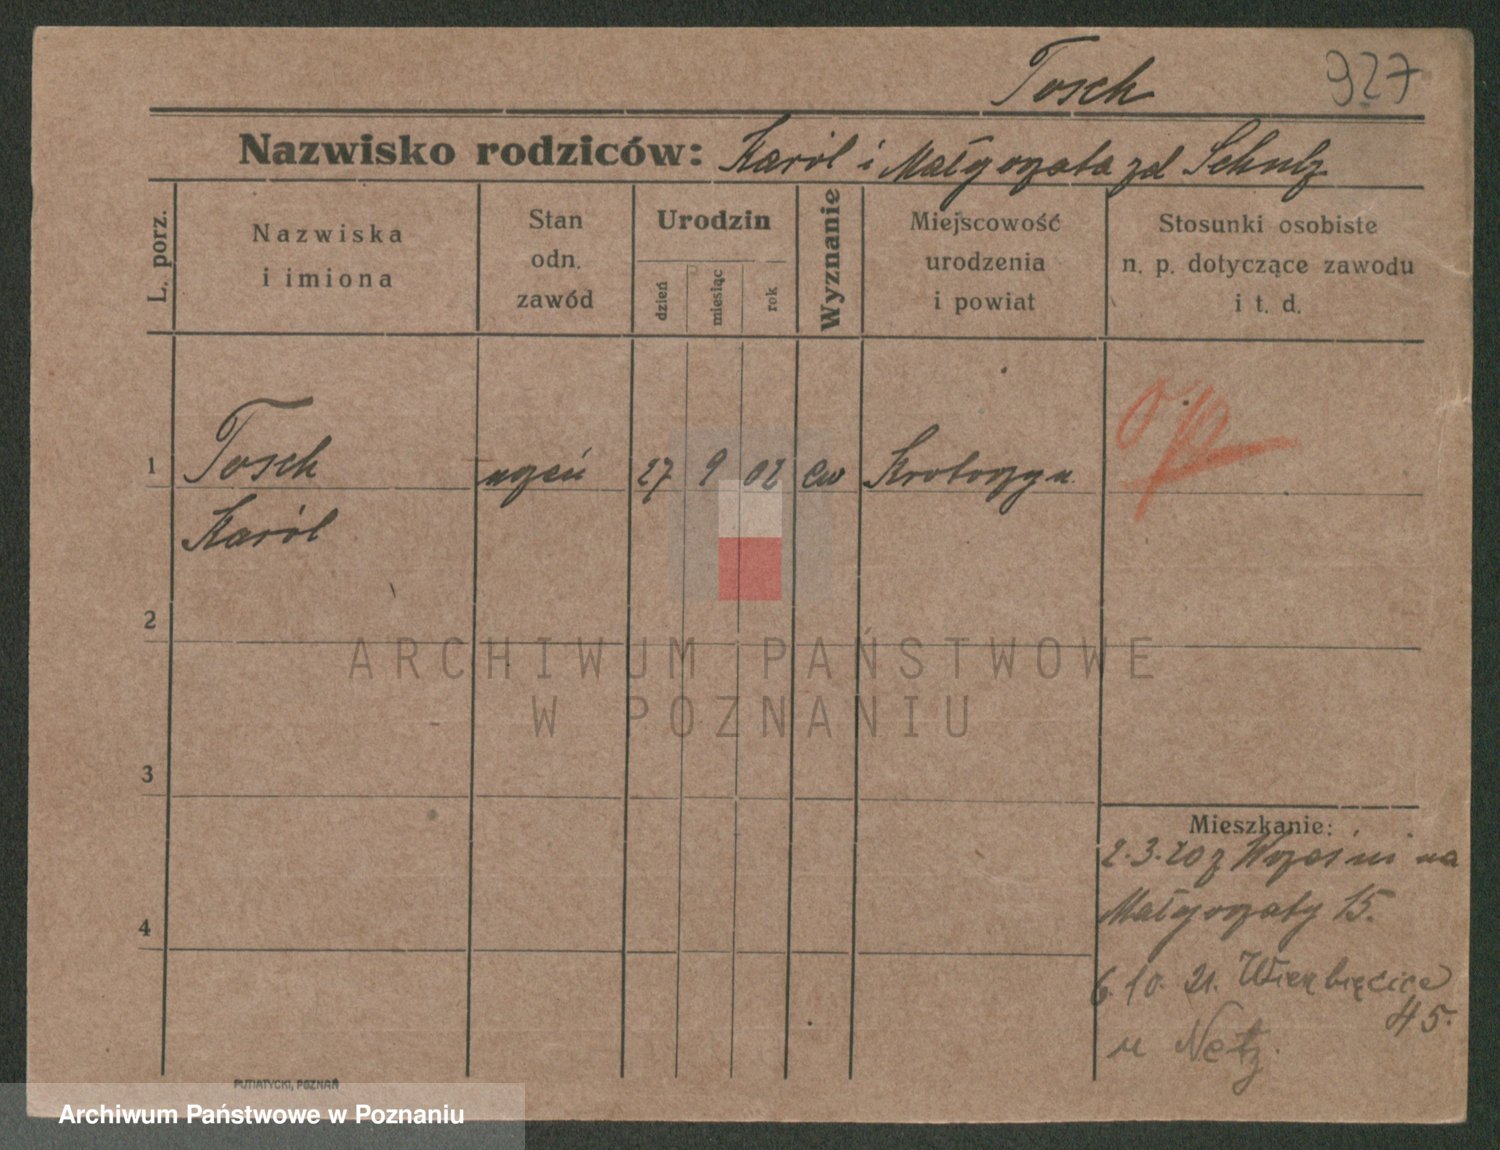 Tosch 927
Nazwisko rodziców: Karól i Małgorzata zd Schulz
L. porz.
Nazwiska
i imiona
Stan
odn.
zawód
Urodzin
dzień
miesiąc
rok
Wyznanie
Miejscowość
urodzenia
i powiat
Stosunki osobiste
n. p. dotyczące zawodu
i t. d.
1 Tosch uczeń 27 9 02 ew Krotoszyn
Karól
2
3
4
Mieszkanie:
2.3.20 z Wrześni na
Małgorzaty 15.
6.10.21. Wierzbięcice
45.
u Netz
ARCHIWUM PAŃSTWOWE
W POZNANIU
PUTIATYCKI, POZNAŃ
Archiwum Państwowe w Poznaniu